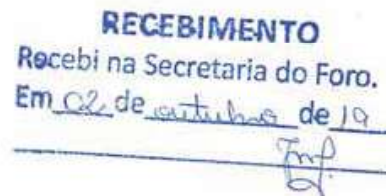 RECEBIMENTO
Recebi na Secretaria do Foro.
Em 02 de outubro de 19